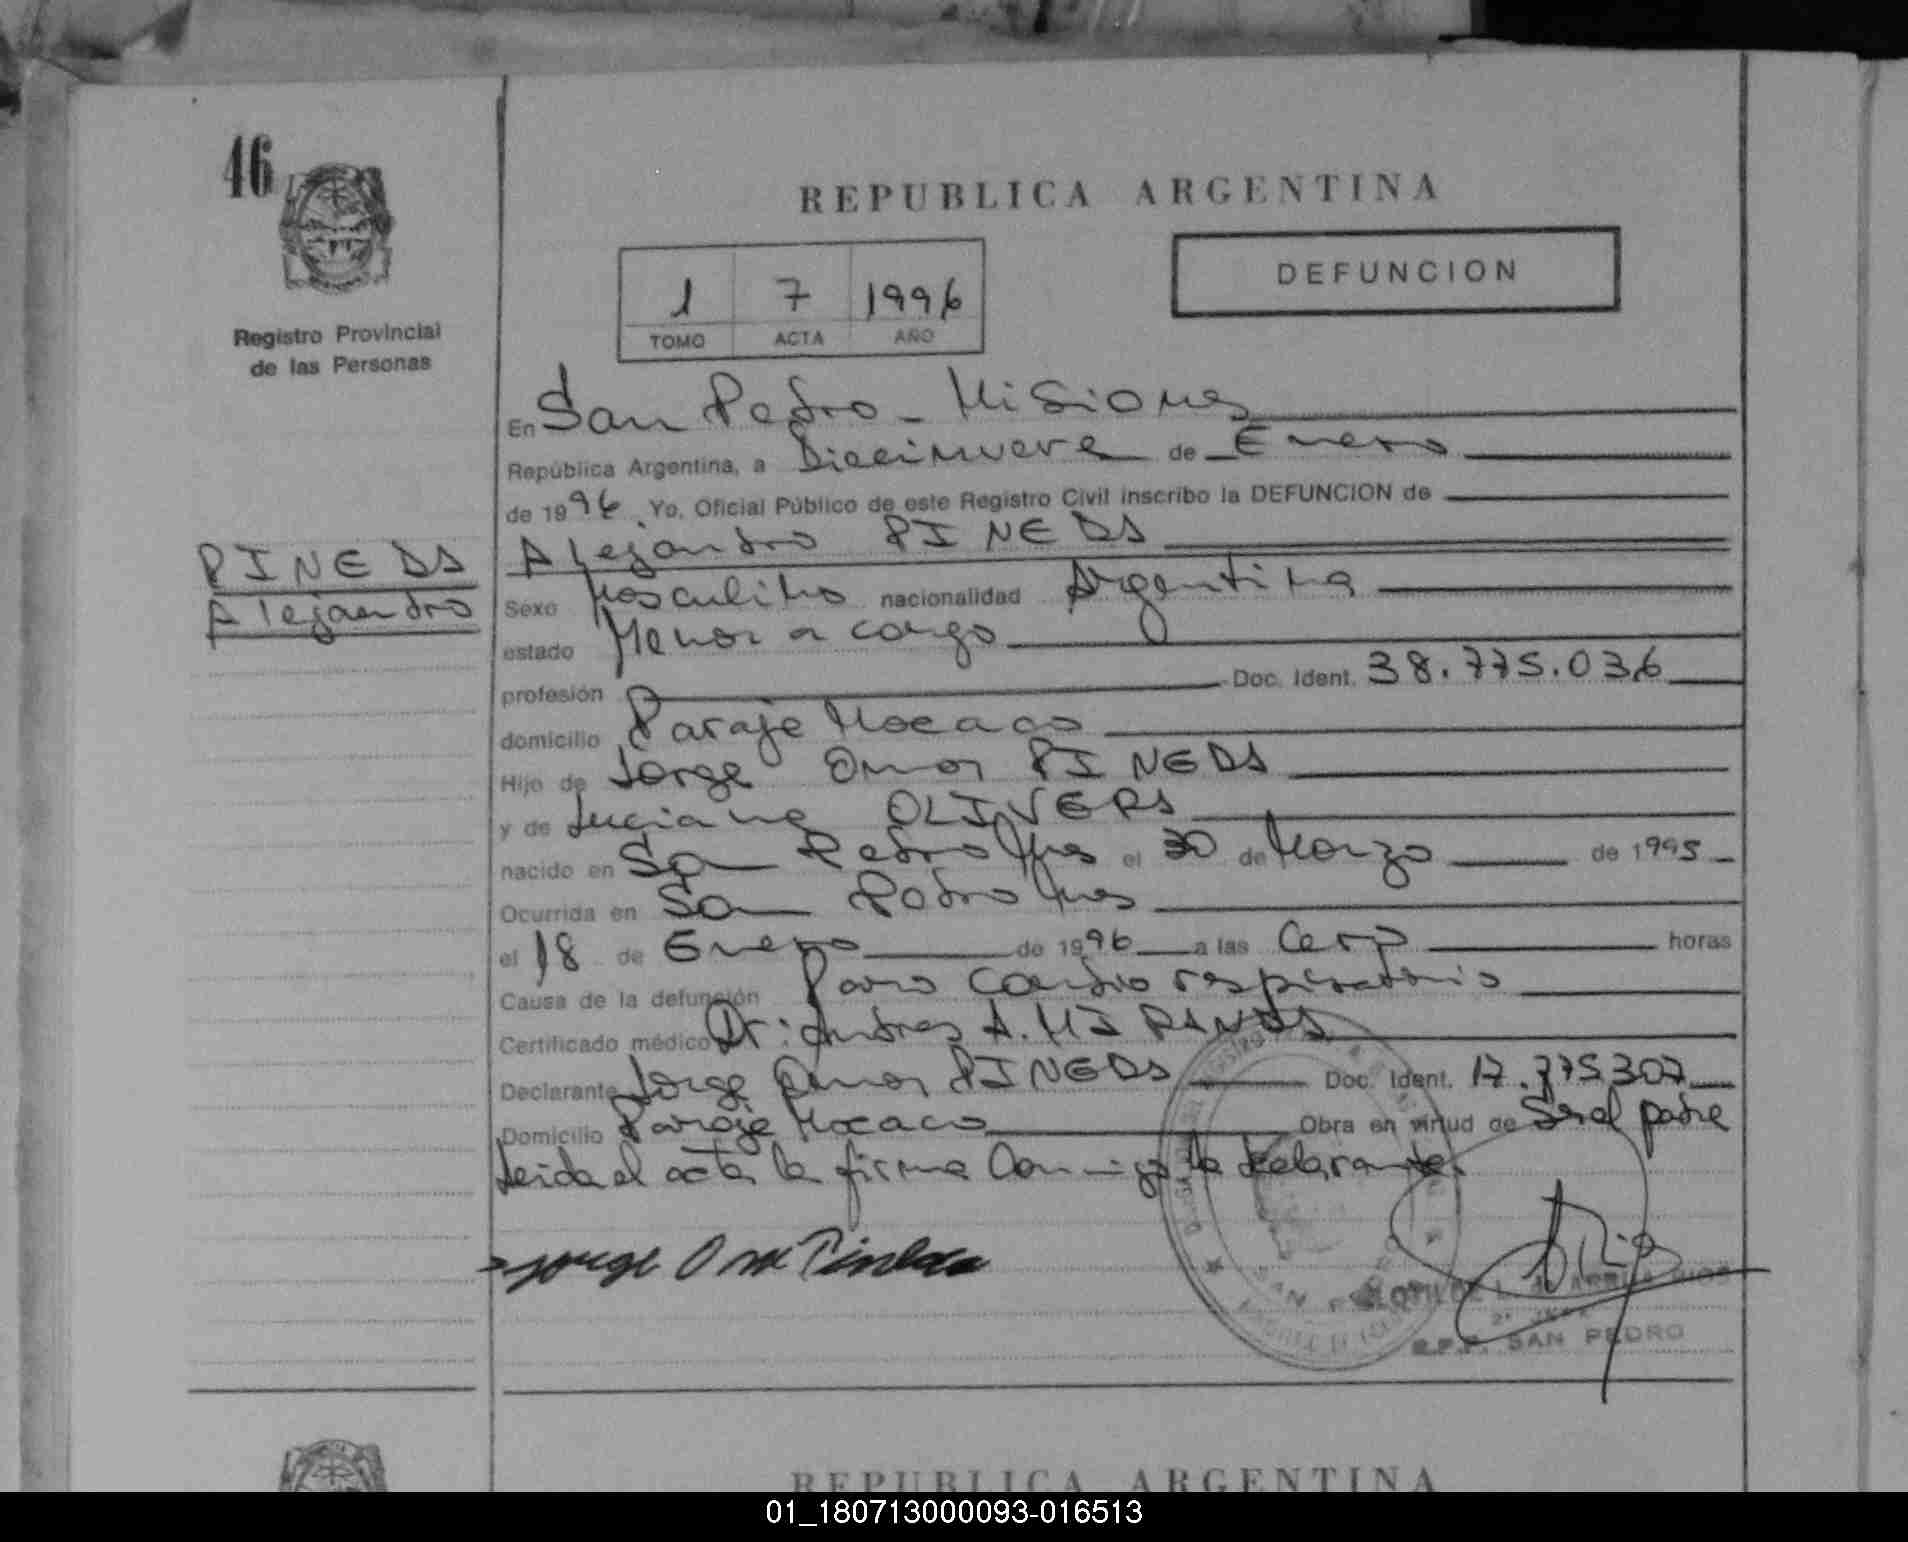 46
REPUBLICA ARGENTINA
DEFUNCION
1 7 1996
TOMO ACTA AÑO
Registro Provincial
de las Personas
En San Pedro - Misiones
República Argentina, a Diecinueve de Enero
de 1996. Yo, Oficial Público de este Registro Civil inscribo la DEFUNCION de
PINEDA
Alejandro
Alejandro PINEDA
Sexo Masculino nacionalidad Argentina
estado Menor a cargo
profesión Doc. Ident. 38.775.036
domicilio Paraje Mocaco
Hijo de Jorge Omar PINEDA
y de Luciana OLIVERA
nacido en San Pedro Mnes el 30 de Marzo de 1995
Ocurrida en San Pedro Mnes
el 18 de Enero de 1996 a las Cero horas
Causa de la defunción Paro Cardio respiratorio
Certificado médico Dr: Andres A. MIRANDA
Declarante Jorge Omar PINEDA Doc. Ident. 17.775307
Domicilio Paraje Mocaco Obra en virtud de Ser el padre
Leida el acta la firma Conmigo la declarante.
Jorge Omar Pineda
SAN PEDRO
RIOS
R.P.P. SAN PEDRO
REPUBLICA ARGENTINA
01_180713000093-016513